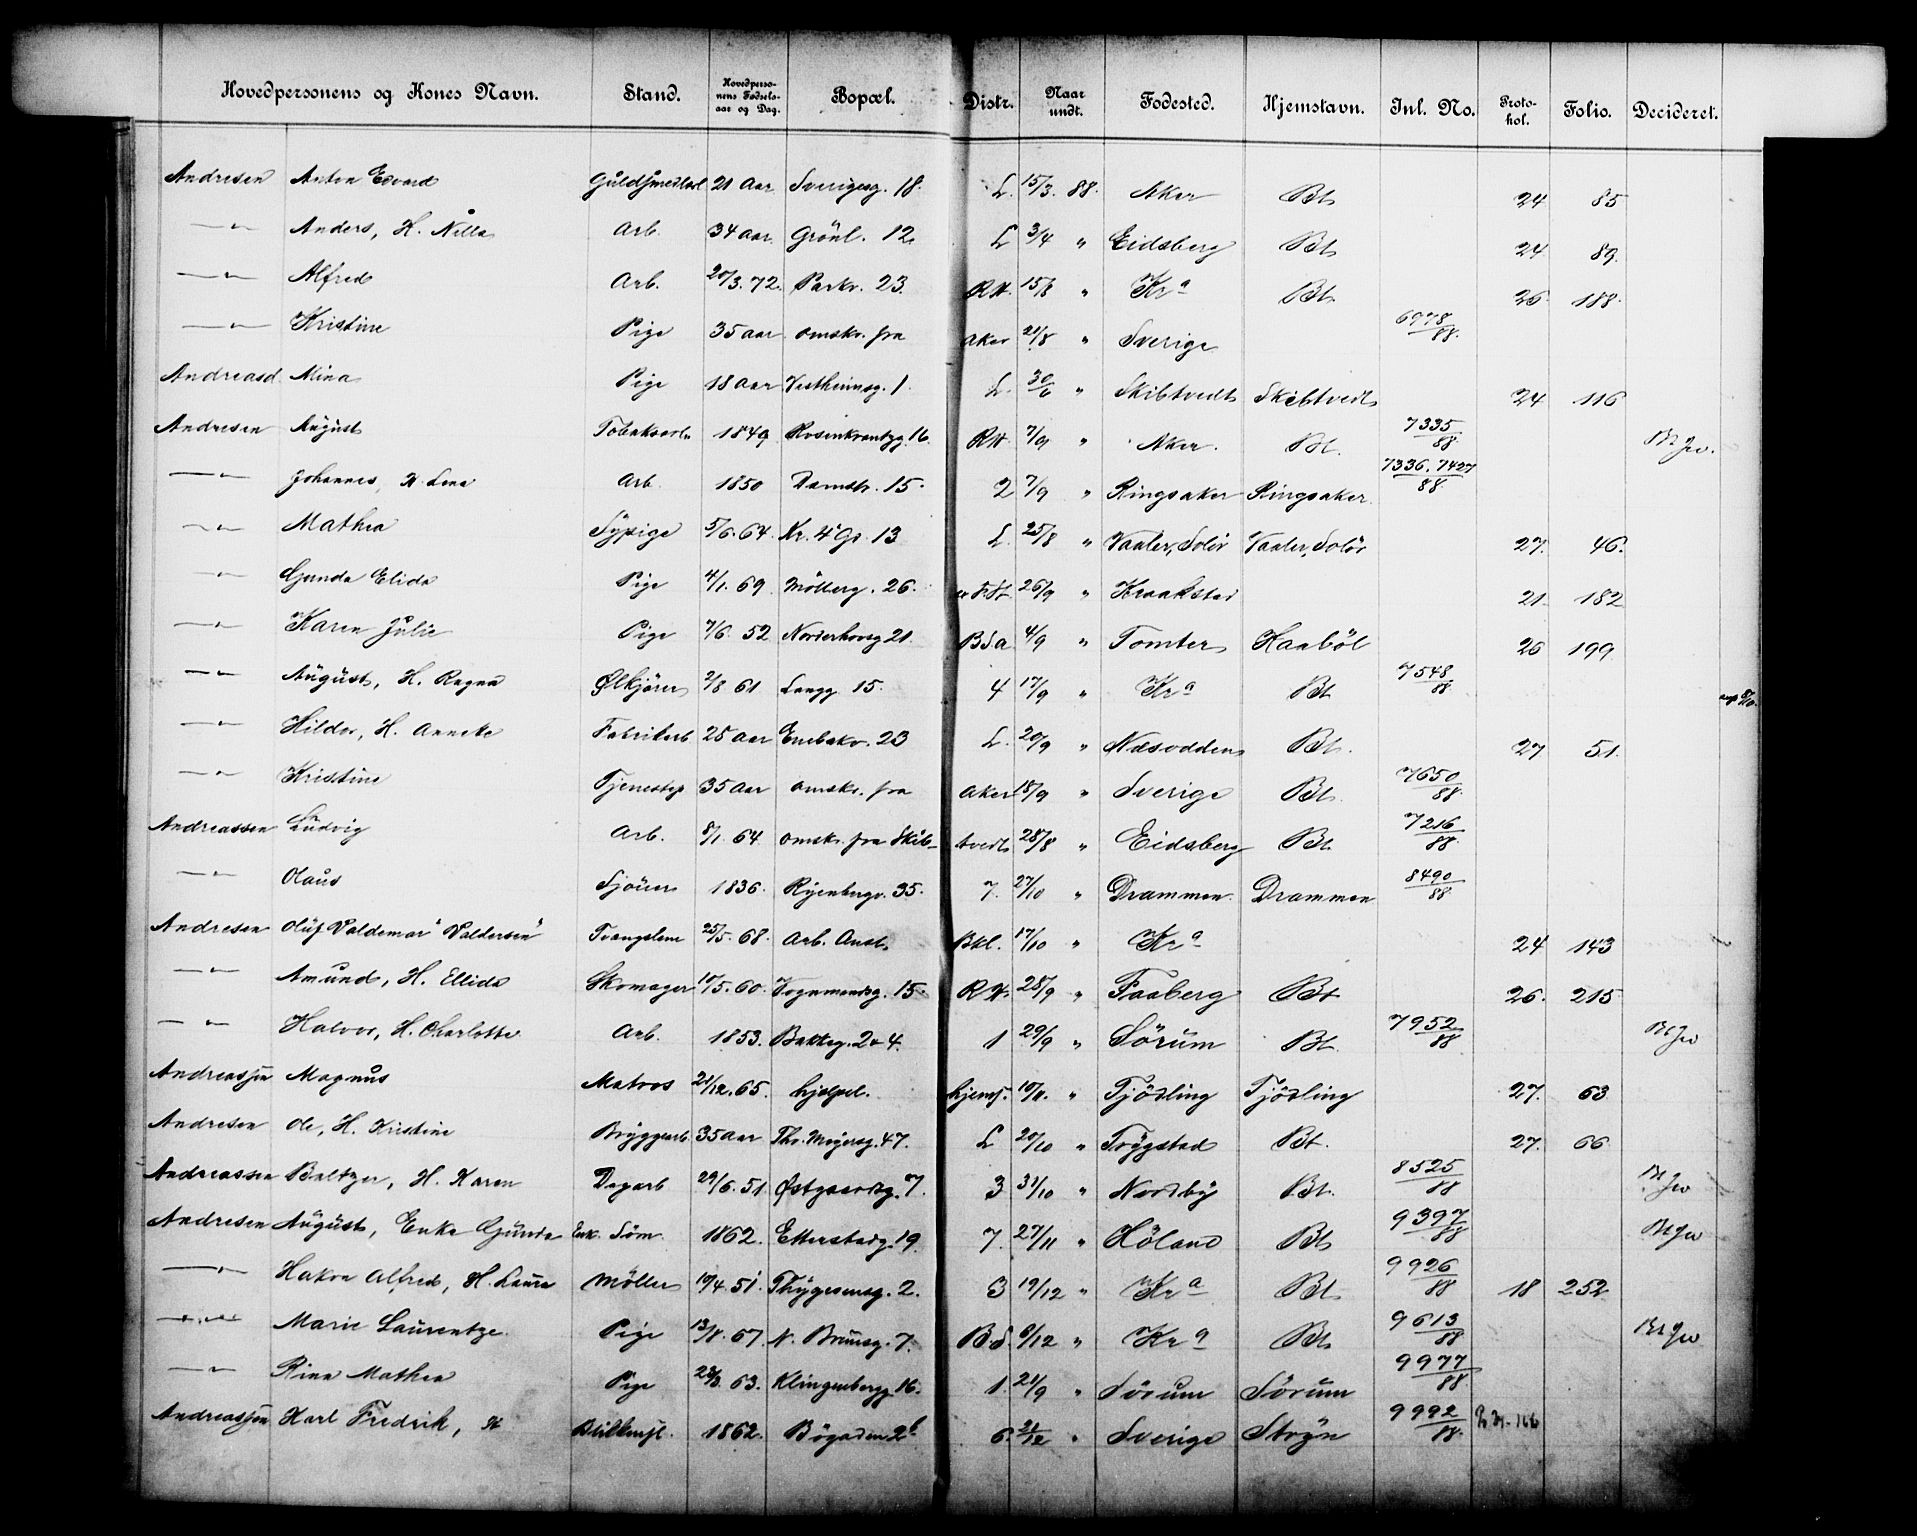 Hovedpersonens og Kones Navn. Stand. Hovedperso-nens Fødsels-aar og Dag. Bopæl. Distr. Naar undt. Fødested. Hjemstavn. Inl. No. Proto-kol. Folio. Decideret.
Andresen Anton Edvard 21 Aar Sverigesg. 18. L. 15/3. 88. Aker Bt 24 85
—"— Anders, H. Nilla Arb. 34 Aar Grönl. 12. L 3/4 " Eidsberg Bt 24 89.
—"— Alfred Arb. 20/3. 72. Parkv. 23. RH. 15/8 " Kra Bt 26 188.
—"— Kristine Pige 35 aar omskr. fra Aker 21/8 " Sverige 6978/88.
Andreasd. Mina Pige 18 Aar Vestheimsg. 1. L. 30/6 " Skibtvedt Skibtvedt 24 116
Andresen August Tobaksarb 1849 Rosenkrantzg. 16. RH 7/9 " Aker. Bt. 7335/88.
—"— Johannes, H. Lena Arb. 1850 Damstr. 15. 2 7/9 " Ringsaker Ringsaker 7336, 7427/88.
—"— Mathea Sypige 5/6. 64. 13 L. 25/8 " Vaaler, Solör Vaaler, Solör 27. 46.
—"— Gunda Elida Pige 4/1. 69. Möllerg. 26. 26/9 " Kraakstad 21. 182
—"— Karen Julie Pige 7/6. 52 Norderhovsg 21. BSa 4/9 " Tomter Haabøl 26 199.
—"— August, H. Ragna Ølkjører 2/8 61 Langg 15. 4 17/9 " Kra Bt 7548/88.
—"— Hildor, H. Anneke Fabrikarb 25 Aar Enebakv. 23 L. 20/9 " Næsodden Bt. 27 51.
—"— Kristine Tjenestep 35 Aar omskr. fra Aker 18/9 " Sverige Bt. 7650/88.
Andreassen Ludvig Arb. 8/1. 64. omskr. fra Skib-tvedt 28/8 " Eidsberg Bt. 7216/88.
—"— Olaus Sjöuer 1836. Ryenbergv. 35. 7. 27/10 " Drammen. Drammen 8490/88.
Andresen Oluf Valdemar "Valdersen" Tvangslem 25/5. 68. Arb. Anst. Bkl. 17/10 " Kra 24 143
—"— Amund, H. Ellida Skomager 10/5. 60. Vognmandsg. 15. RH. 28/9 " Faaberg Bt 26. 215
—"— Halvor, H. Charlotte Arb. 1853. Bakkeg. 2 & 4. 1 29/9 " Sörum Bt. 7952/88
Andreassen Magnus Matros 21/12. 65. hjelpel. hjems. 10/11. " Tjödling Tjödling 27. 63
Andresen Ole, H. Kristine Bryggearb. 35 Aar Th. Meyersg. 47. L 20/10 " Trygstad Bt. 27. 66
Andreassen Baltzer, H. Karen Dagarb 29/6. 51. Østgaardsg. 7. 3 31/10 " Nordby Bt. 8525/88
Andresen August, Enke Gunda Enk. Søm. 1862. Etterstadg. 19. 7. 27/11 " Höland Bt 9397/88
—"— Hakon Alfred, H. Laura Möller 10/4. 51. Thygesensg. 2. 3 19/12 " Kra Bt 9926/88 18 252
—"— Marie Laurentze Pige 13/8. 67. N. Brunsg. 7. B.S 6/12 " Kra Bt 9613/88
—"— Rina Mathea Pige 63. Klingenbergg 16. 1. 21/9 " Sörum Sörum 9977/88.
Andreassen Karl Fredrik, H 1862. Bøgaden 2b 6. 21/12 " Sverige Stryn 9992/88.